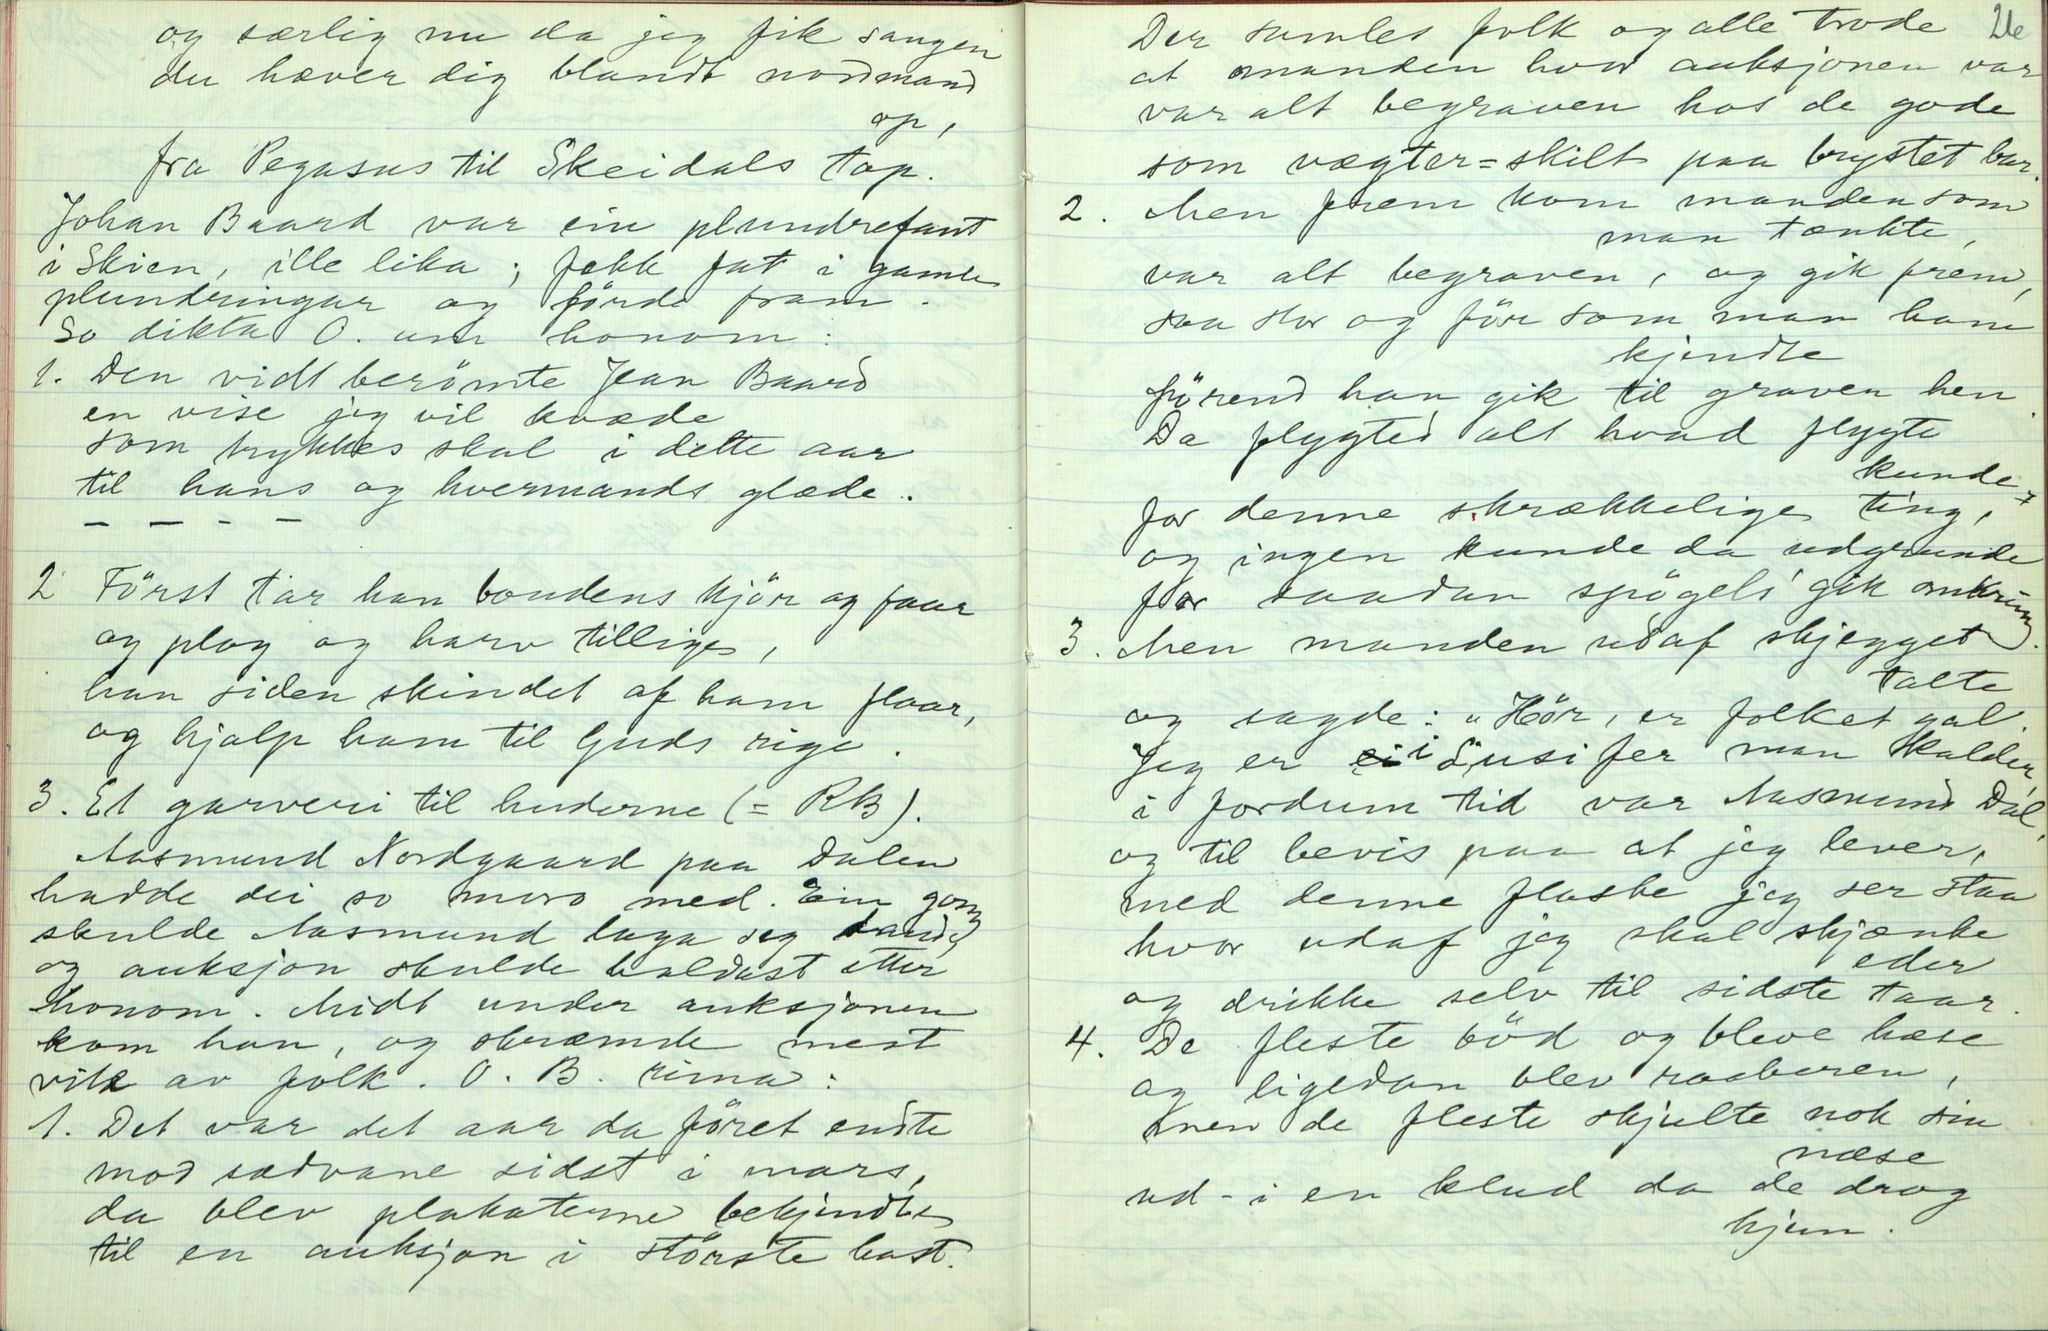 og særlig nu da jeg fik sangen
du hæver dig blandt nordmænd
op,
fra Pegasus til Skeidals top.
Johan Baard var ein plundrefant
i Skien, ille lika; fekk fat i gamle
plundringar og førde fram.
So dikta O. um honom:
1. Den vidt berömte Jean Baard
en vise jeg vil kvæde
som trykkes skal i dette aar
til hans og hvermands glæde.
– – – –
2 Först tar han bondens kjör og faar
og plog og harv tillige,
han siden skindet af ham flaar,
og hjalp ham til Guds rige.
3. Et garveri til huderne (= RB).
Aasmund Nordgaard paa Dalen
hadde dei so moro med. Ein gong
skulde Aasmund laga seg daud,
og auksjon skulde haldast etter
honom. Midt under auksjonen
kom han, og skræmde mest
vitet av folk. O. B. rima:
1. Det var det aar da föret endte
mod sædvane sidst i mars,
da blev plakaterne bekjendte
til en auksjon i störste hast.
26
Der samles folk og alle trode
at manden hvor auksjonen var
var alt begraven hos de gode
som vægter=skilt paa brystet bar.
2. Men frem kom manden som
man tænkte,
var alt begraven, og gik frem,
saa stor og för som man ham
kjendte
förend han gik til graven hen.
Da flygted alt hvad flygte
kunde
for denne skrækkelige ting,
og ingen kunde da udgrunde
for saadan spögels' gik omkring.
3. Men manden udaf skjegget
talte
og sagde: „Hör, er folket gal.
Jeg er ei i Lusifer man kalder,
i fordum tid var Aasmund Dal,
og til bevis paa at jeg lever,
med denne flaske jeg ser staa
hvor udaf jeg skal skjænke
eder
og drikke selv til sidste taar.
4. De fleste böd og bleve hæse
og ligedan blev raaberen,
men de fleste skjulte nok sin
næse
ud- i en klud da de drog
hjem.